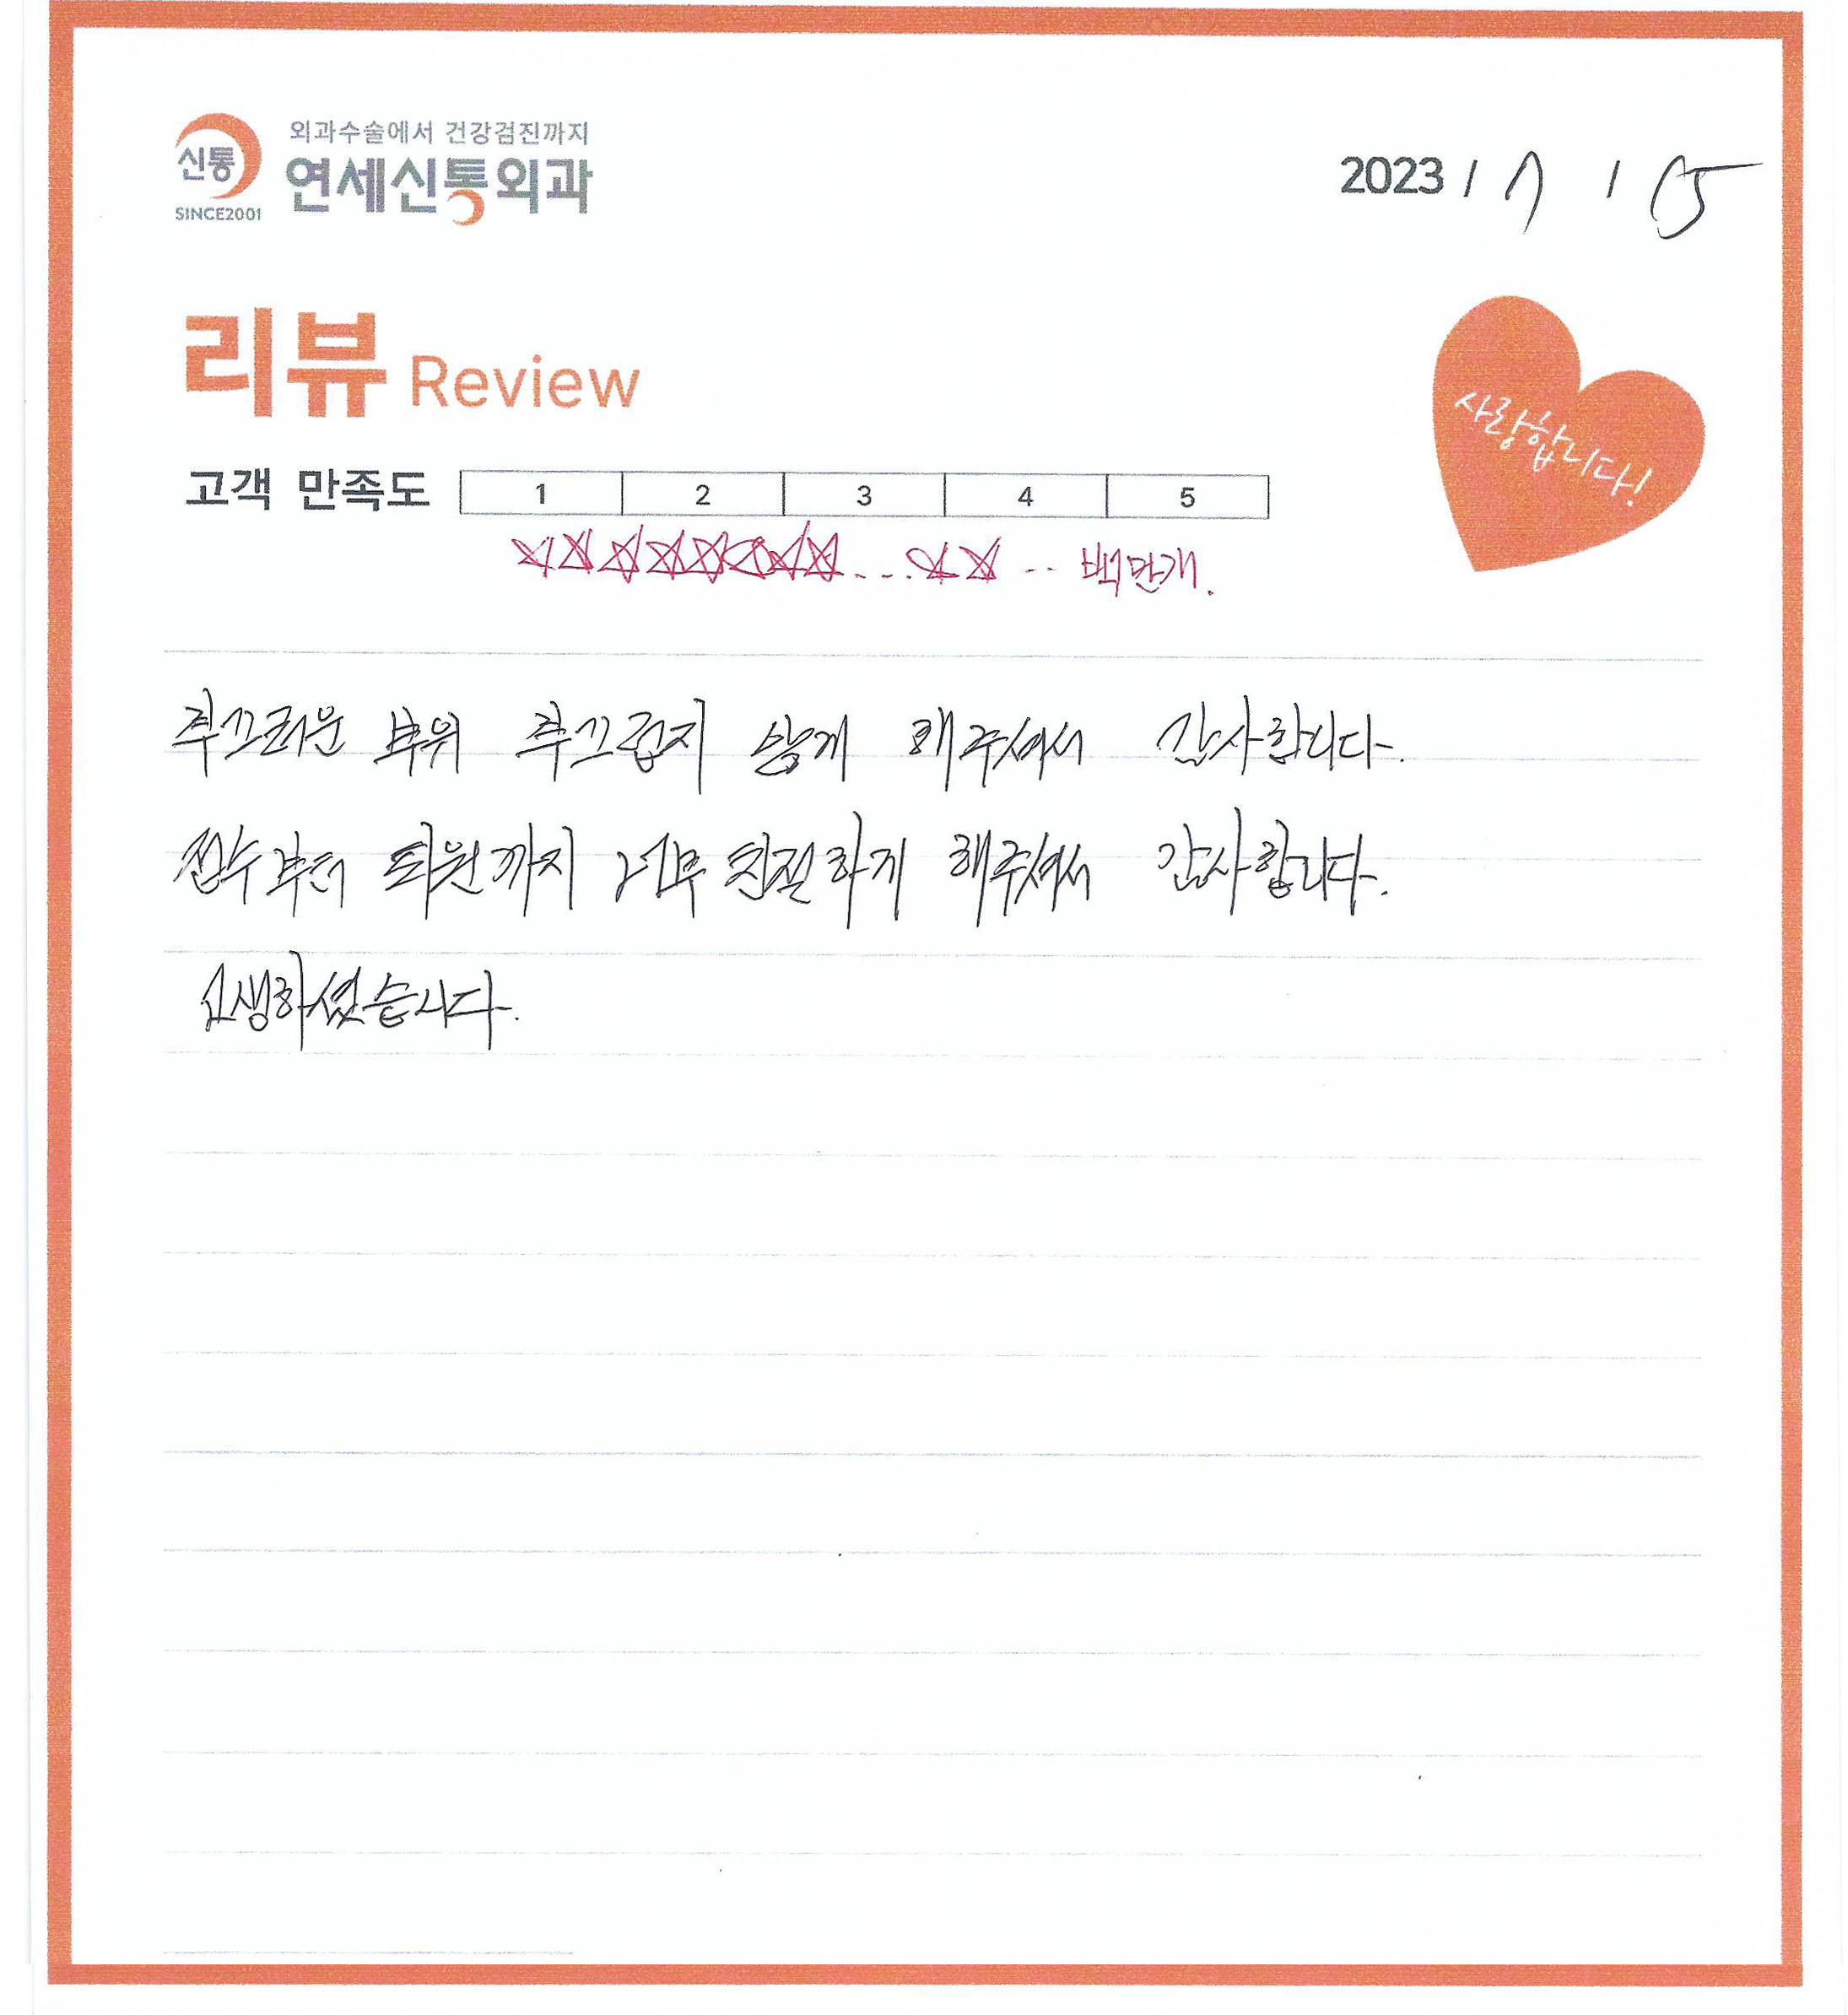 외과수술에서 건강검진까지
신통 연세신통외과
SINCE2001
2023 / 7 / 15
리뷰 Review
사랑합니다!
고객 만족도 1 2 3 4 5
☆☆☆☆☆☆☆☆....☆☆.. 백만개.
부끄러운 부위 부끄럽지 않게 해주셔서 감사합니다.
접수부터 퇴원까지 너무 친절하게 해주셔서 감사합니다.
고생하셨습니다.